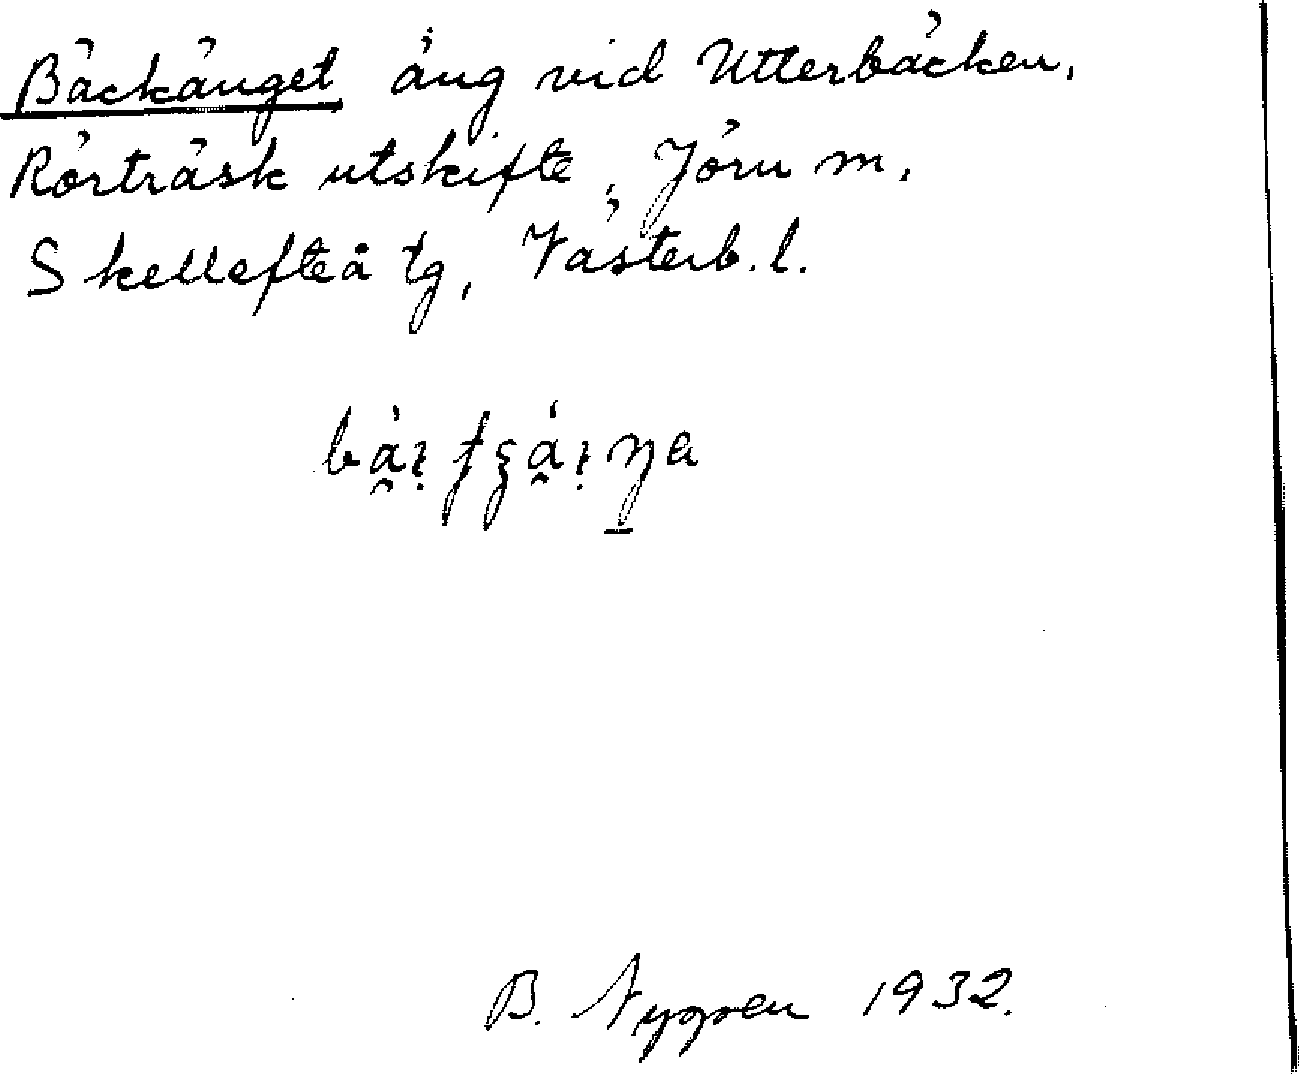 Bäckänget äng vid Utterbäcken,
Rörträsk utskifte, Jörn m,
Skellefteå tg, Västerb. l.
B. Nygren 1932.